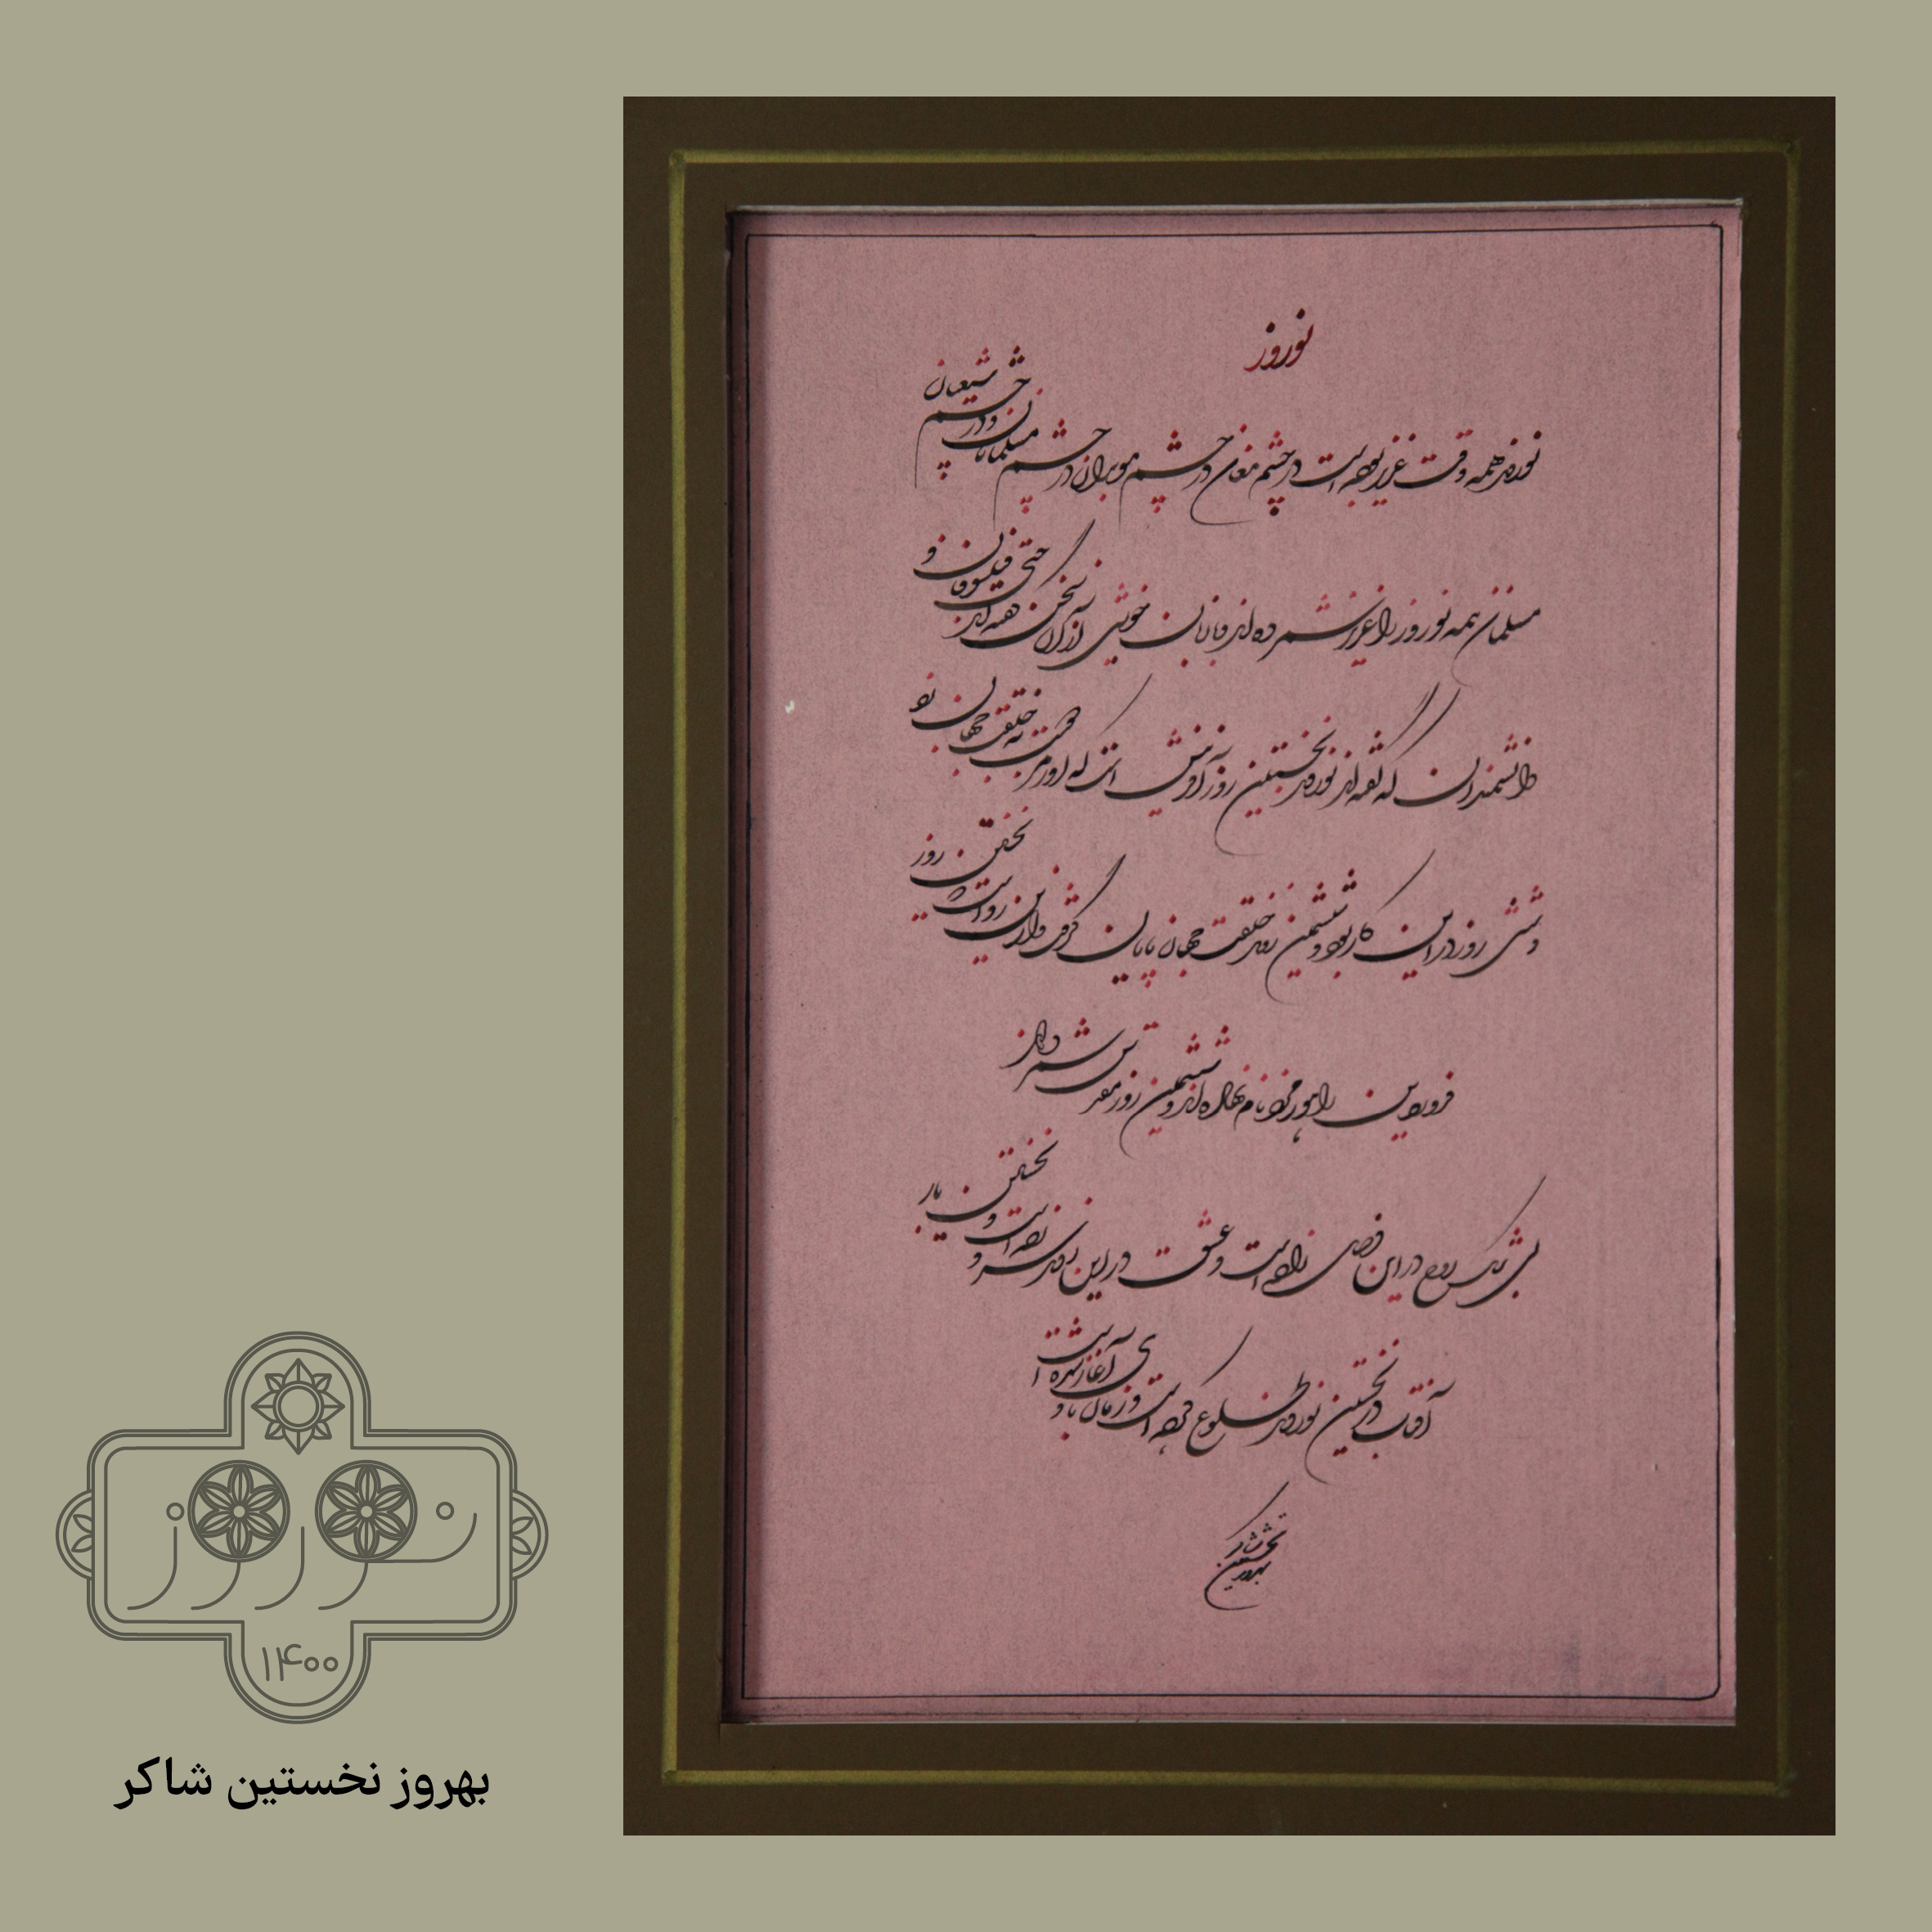 نوروز
نوروز همه وقت عزیز بوده است در چشم مغان در چشم موبدان در چشم مسلمانان و در چشم شیعیان
مسلمان همه نوروز را عزیز شمرده اند و با زبان خویش از آن سخن گفته اند حتی فیلسوفان و
دانشمندان که گفته اند نوروز نخستین روز آفرینش است که اورمزد دست به خلقت جهان زد
و شش روز در این کار بود و ششمین روز خلقت جهان پایان گرفت و از این روست که نخستین روز
فروردین را هورمزد نام نهاده اند و ششمین روز را مقدس شمرده اند
بی شک روح در این فصل زاده است و عشق در این روز سر زده است و نخستین بار
آفتاب در نخستین نوروز طلوع کرده است و زمان با وی آغاز شده است
بهروز نخستین شاکر
نوروز
۱۴۰۰
بهروز نخستین شاکر